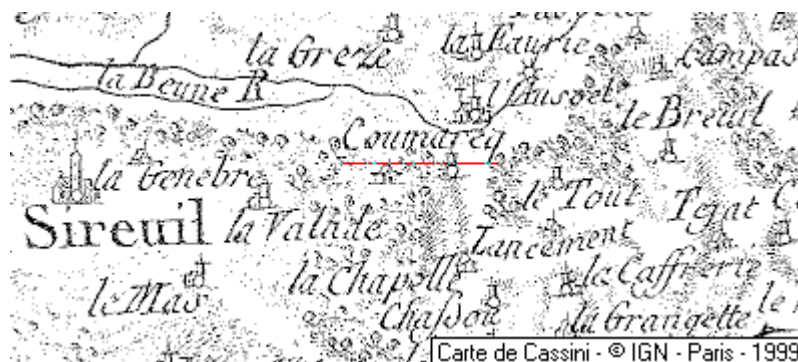 la Greze
la Faurie
Campas
la Beune R
l'Ussoel
le Breuil
Coumarcq
la Genebre
le Tout
Tegat
Sireuil
la Valade
Lancement
la Chapelle
le Caffrerie
le Mas
Chassou
la Grangette
Carte de Cassini - © IGN - Paris - 1999